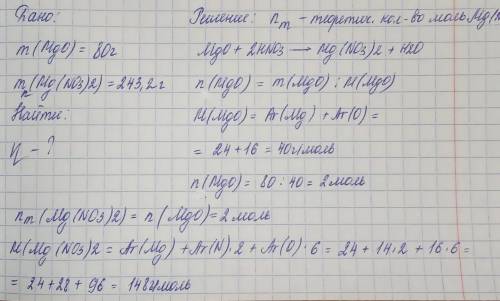 Дано:
m(MgO) = 80г
mп(Mg(NO3)2) = 243,2г
Найти:
η - ?
Решение: nт - теоретич. кол-во моль Mg(N
MgO + 2HNO3 → Mg(NO3)2 + H2O
n(MgO) = m(MgO) : M(MgO)
M(MgO) = Ar(Mg) + Ar(O) =
= 24 + 16 = 40г/моль
n(MgO) = 80 : 40 = 2 моль
nт(Mg(NO3)2) = n(MgO) = 2 моль
M(Mg(NO3)2 = Ar(Mg) + Ar(N)·2 + Ar(O)·6 = 24 + 14·2 + 16·6 =
= 24 + 28 + 96 = 148г/моль